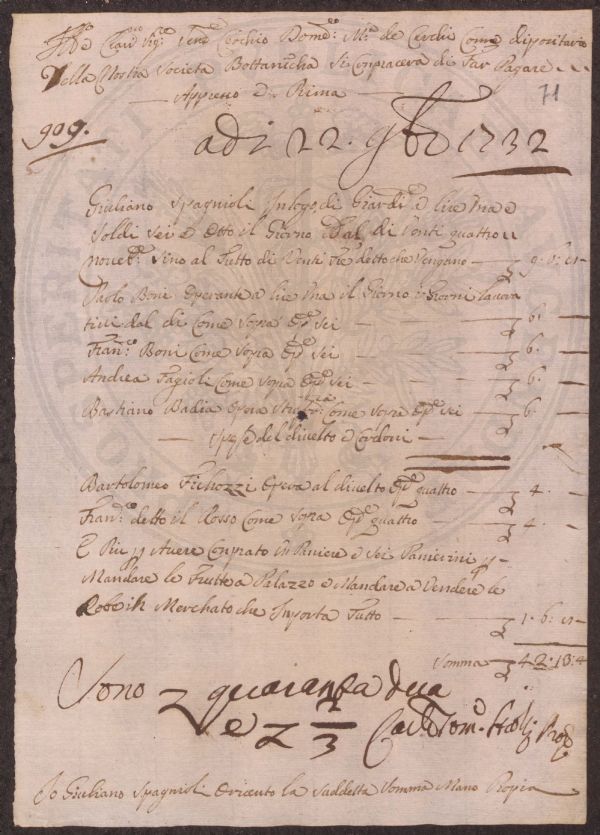 Sig.re Tené Cecchio Dom.co M.a de Cerchi Come dipositario
Della Nostra Società Bottanicha Si Conpiacerà di Far Pagare
Appreso di Rima
71
909.
adi 22. 9bre 1732
Giuliano Spagnioli In logo di Giardi.e lire Una e
Soldi Sei e Otto il Giorno dal di Venti quattro
Sino al Tutto di Venti detto che Vengano 9. 6. 8
Paolo Boni Operante a lire Una il Giorno Giorni lavora
tivi dal di Come Sopra Sei 6.
Fran.co Boni Come Sopra Sei 6.
Andrea Fagioli Come Sopra Sei 6.
Bastiano Badia Opera Come Sopra Sei 6.
Spese del divelto e Cordoni
Bartolomeo Fichozzi Opera al divelto quattro 4.
Fran.co detto il Rosso Come Sopra quattro 4.
E Piu p Avere Conprato Un Paniere e Sei Panierini p
Mandare le Frutte a Palazzo e Mandare a Vendere le
Robe in Merchato che Inporta Tutto 1. 6. 8
Somma 42. 13. 4
Sono quaranta dua
e 2/3
Io Giuliano Spagnioli O ricevuto la Suddetta Somma Mano Propia